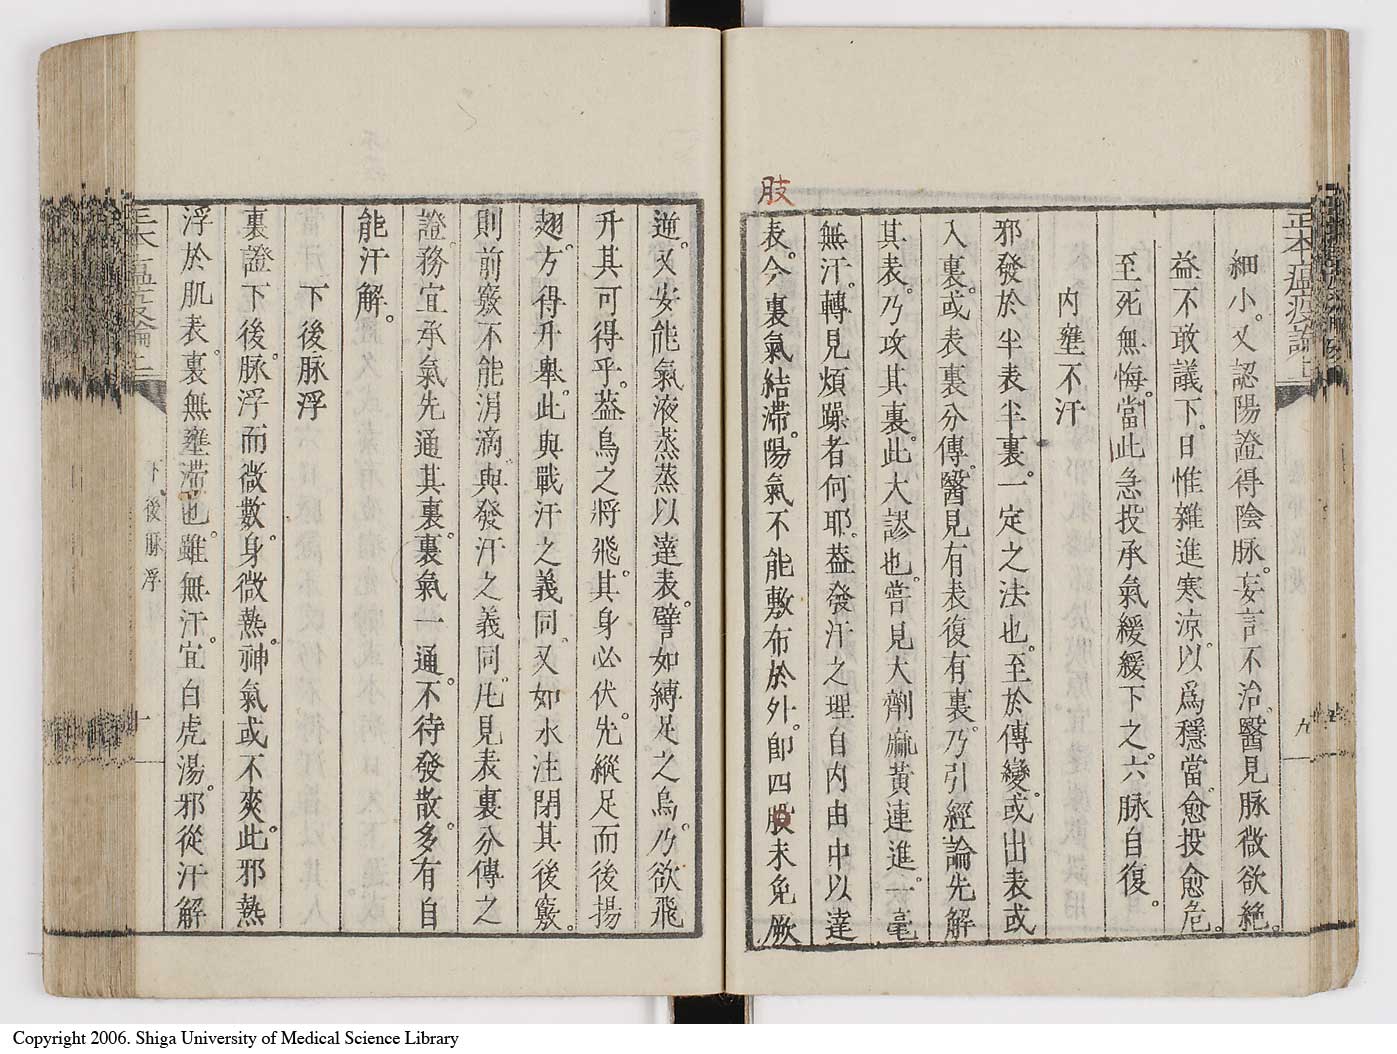 正本瘟疫論上
九
細小。又認陽證得陰脉。妄言不治。醫見脉微欲絶。
益不敢議下。日惟雜進寒凉。以爲穩當。愈投愈危。
至死無悔。當此急投承氣緩緩下之。六脉自復。
内壅不汗
邪發於半表半裏。一定之法也。至於傳變。或出表或
入裏。或表裏分傳。醫見有表復有裏。乃引經論先解
其表。乃攻其裏。此大謬也。嘗見大劑麻黃連進。一毫
無汗。轉見煩躁者何耶。葢發汗之理自内由中以達
表。今裏氣結滯。陽氣不能敷布於外。即四股未免厥
肢
逆。又安能氣液蒸蒸以達表。譬如縛足之鳥。乃欲飛
升其可得乎。葢鳥之將飛。其身必伏。先縱足而後揚
翅。方得升舉。此與戰汗之義同。又如水注閉其後竅。
則前竅不能涓滴。與發汗之義同。凡見表裏分傳之
證。務宜承氣先通其裏。裏氣一通。不待發散。多有自
能汗解。
下後脉浮
裏證下後。脉浮而微數。身微熱。神氣或不爽。此邪熱
浮於肌表。裏無壅滯也。雖無汗。宜白虎湯。邪從汗解
下後脉浮
Copyright 2006. Shiga University of Medical Science Library